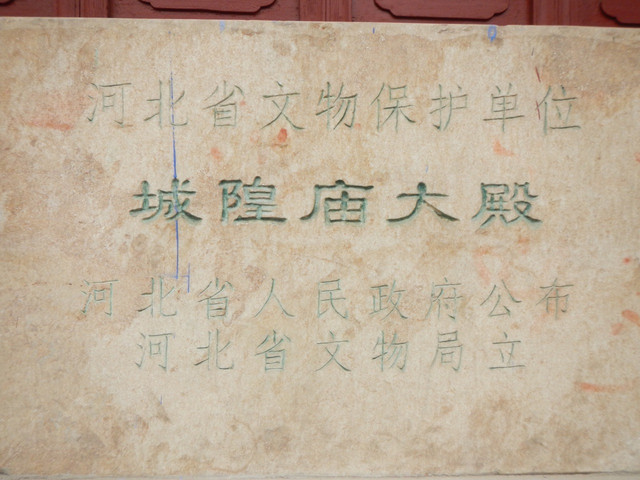 河北省文物保护单位
城隍庙大殿
河北省人民政府公布
河北省文物局立